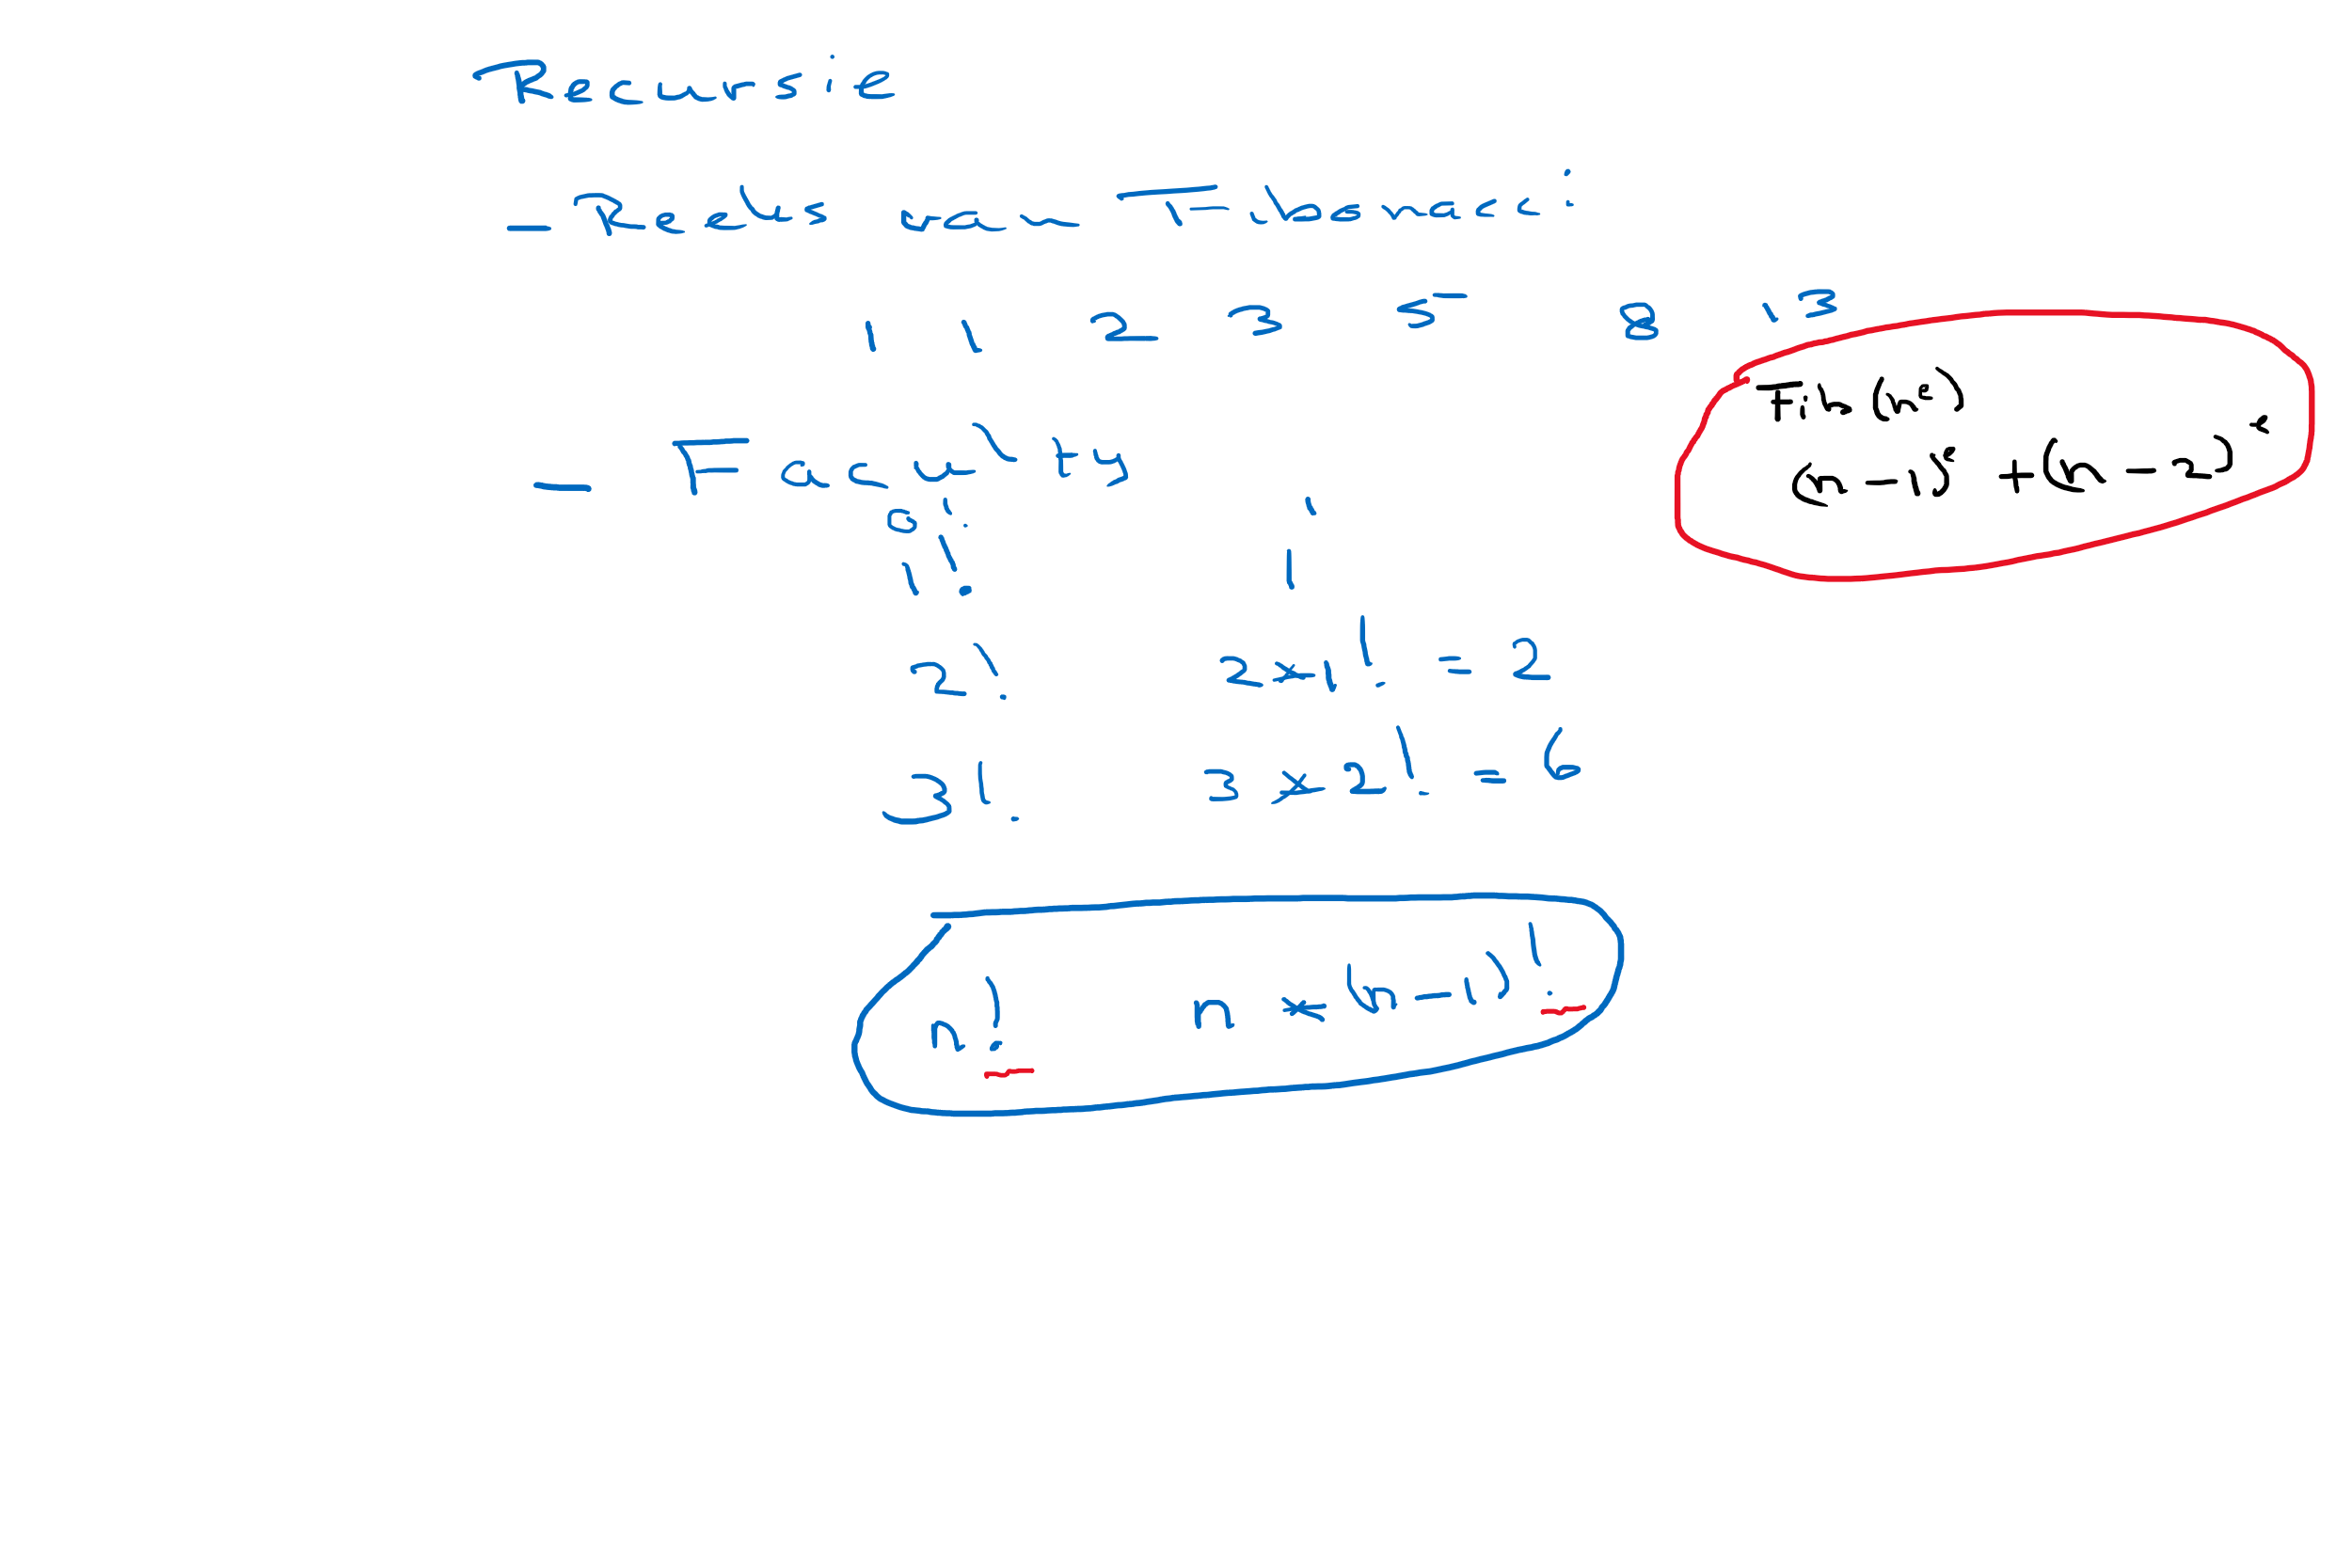 Recursie
- Reeks van Fibonacci
1 1 2 3 5 8 13
Fib(ne)
(n-1)e + (n-2)e
- Faculty
0! 1
1! 1
2! 2*1! = 2
3! 3*2! = 6
n! n*(n-1)!